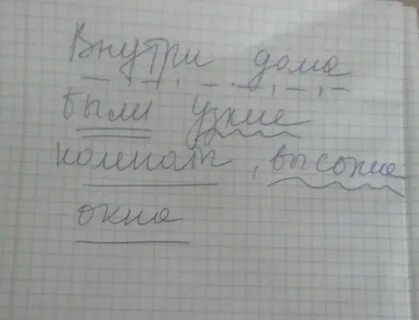 Внутри дома
были узкие
комнаты, высокие
окна